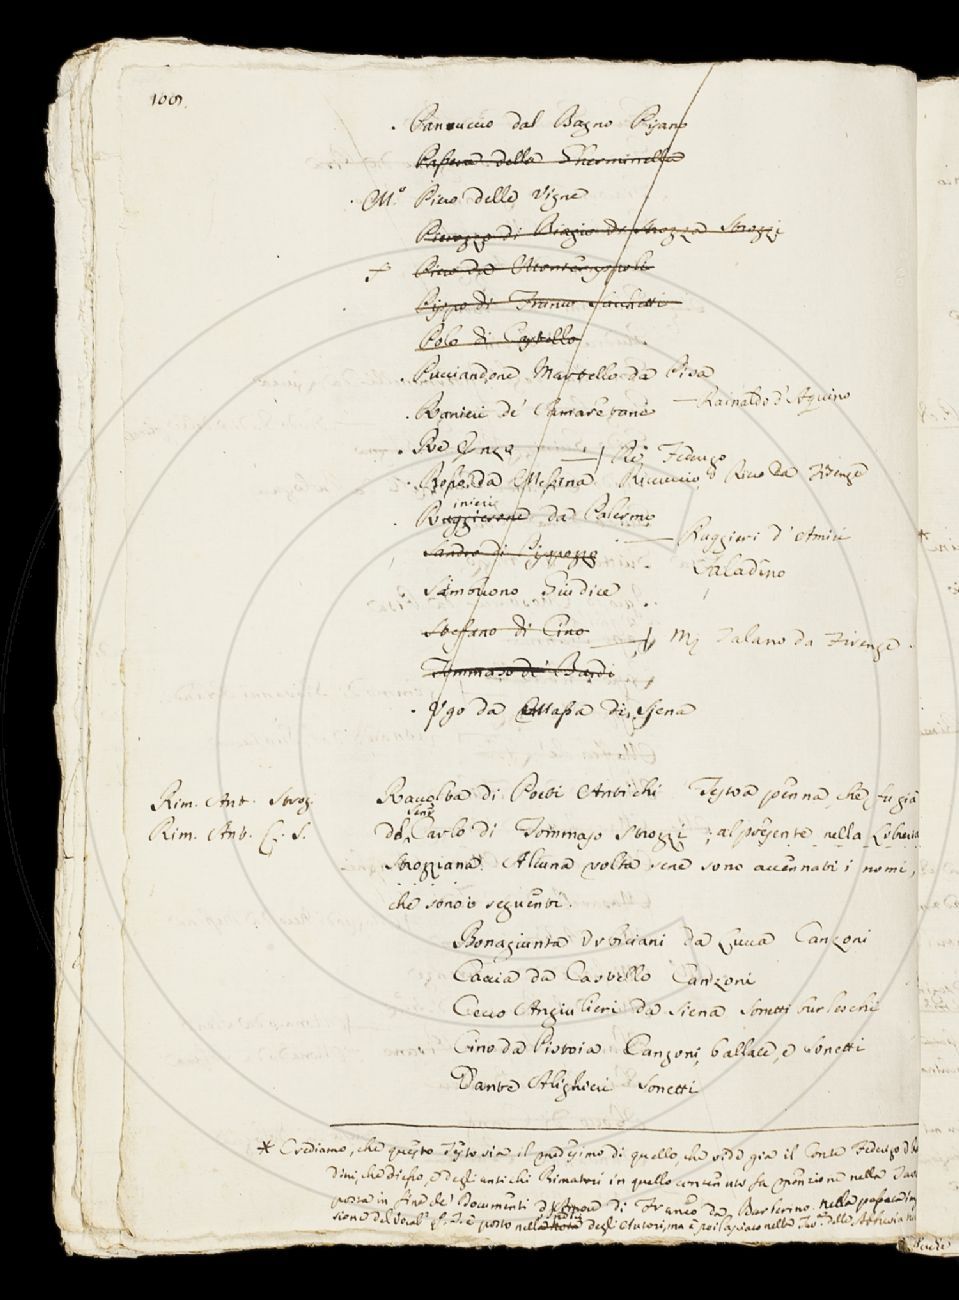 . Pannuccio dal Bagno Pisano
Passera della Gherminella
. M.º Piero delle Vigne
Pierozzo di Biagio di Strozza Strozzi
Piero da Monterappoli
Pippo di Franco Sacchetti
Polo di Castello
. Pucciandone Martello da Pisa
. Ranieri de' Samaretani — Rainaldo d'Aquino
. Re Enzo — Re Federigo
. Rosso da Messina. Ricuccio, o Ricco da Firenze
inieri
. Ruggierone da Palermo
— Ruggieri d'Amici
Sandro di Pippozzo
Saladino
Simbuono Giudice
Stefano di Cino — M Salano da Firenze .
Tommaso de' Bardi
. Ugo da Massa di Siena
Rim. Ant. Stroz. Raccolta di Poeti Antichi Testo a penna, che fu già
Sen.
Rim. Ant. C. S. del Carlo di Tommaso Strozzi ; al presente nella Libreria
Strozziana. Alcuna volta sene sono accennati i nomi,
che sono i seguenti.
Bonagiunta Urbiciani da Lucca Canzoni
Caccia da Castello Canzoni
Cecco Angiulieri da Siena Sonetti burleschi
Cino da Pistoia Canzoni, ballate, e Sonetti
Dante Alighieri Sonetti
* Crediamo, che questo Testo sia il medesimo di quello, che vide già il Conte Federigo
dini, che di esso, e degli antichi Rimatori in quello contenuti fa menzione nella
posta in fine de' Documenti d'Amore di Franco da Barberino. nella passata
sione del è posto nella degli Autori, ma è poi lasciato nella delle